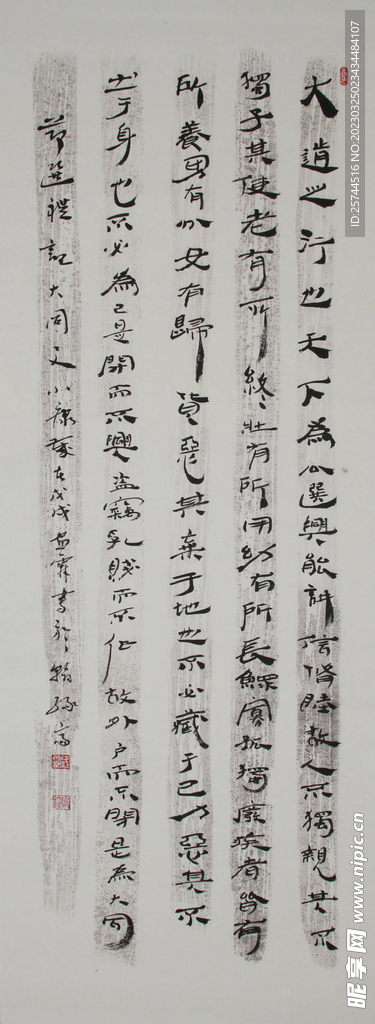 大道之行也天下為公選與能講信脩睦故人不獨親其不
獨子其使老有所終壯有所用幼有所長鰥寡孤獨廢疾者皆有
所養男有分女有歸貨惡其棄于地也不必藏于己力惡其不
出于身也不必為己是閉而不興盜竊乱賊而不作故外戶而不閉是為大同
節選禮記大同又小康
戊戌 書於
昵享网 www.nipic.cn
ID:25744516 NO:20230325023434484107